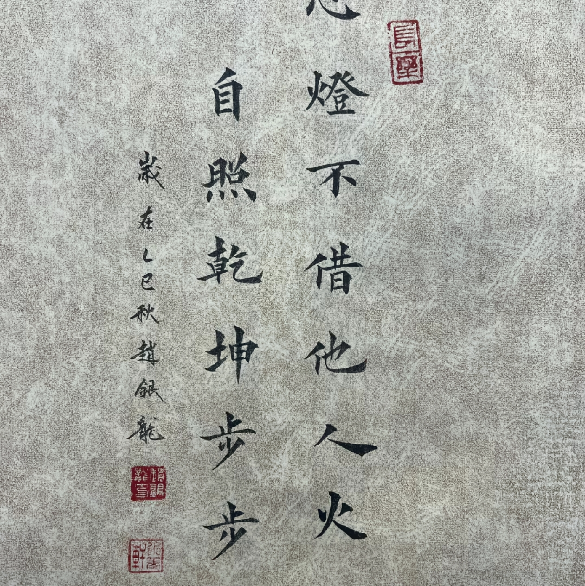 燈不借他人火
自照乾坤步步
歲在乙巳秋趙銀龍